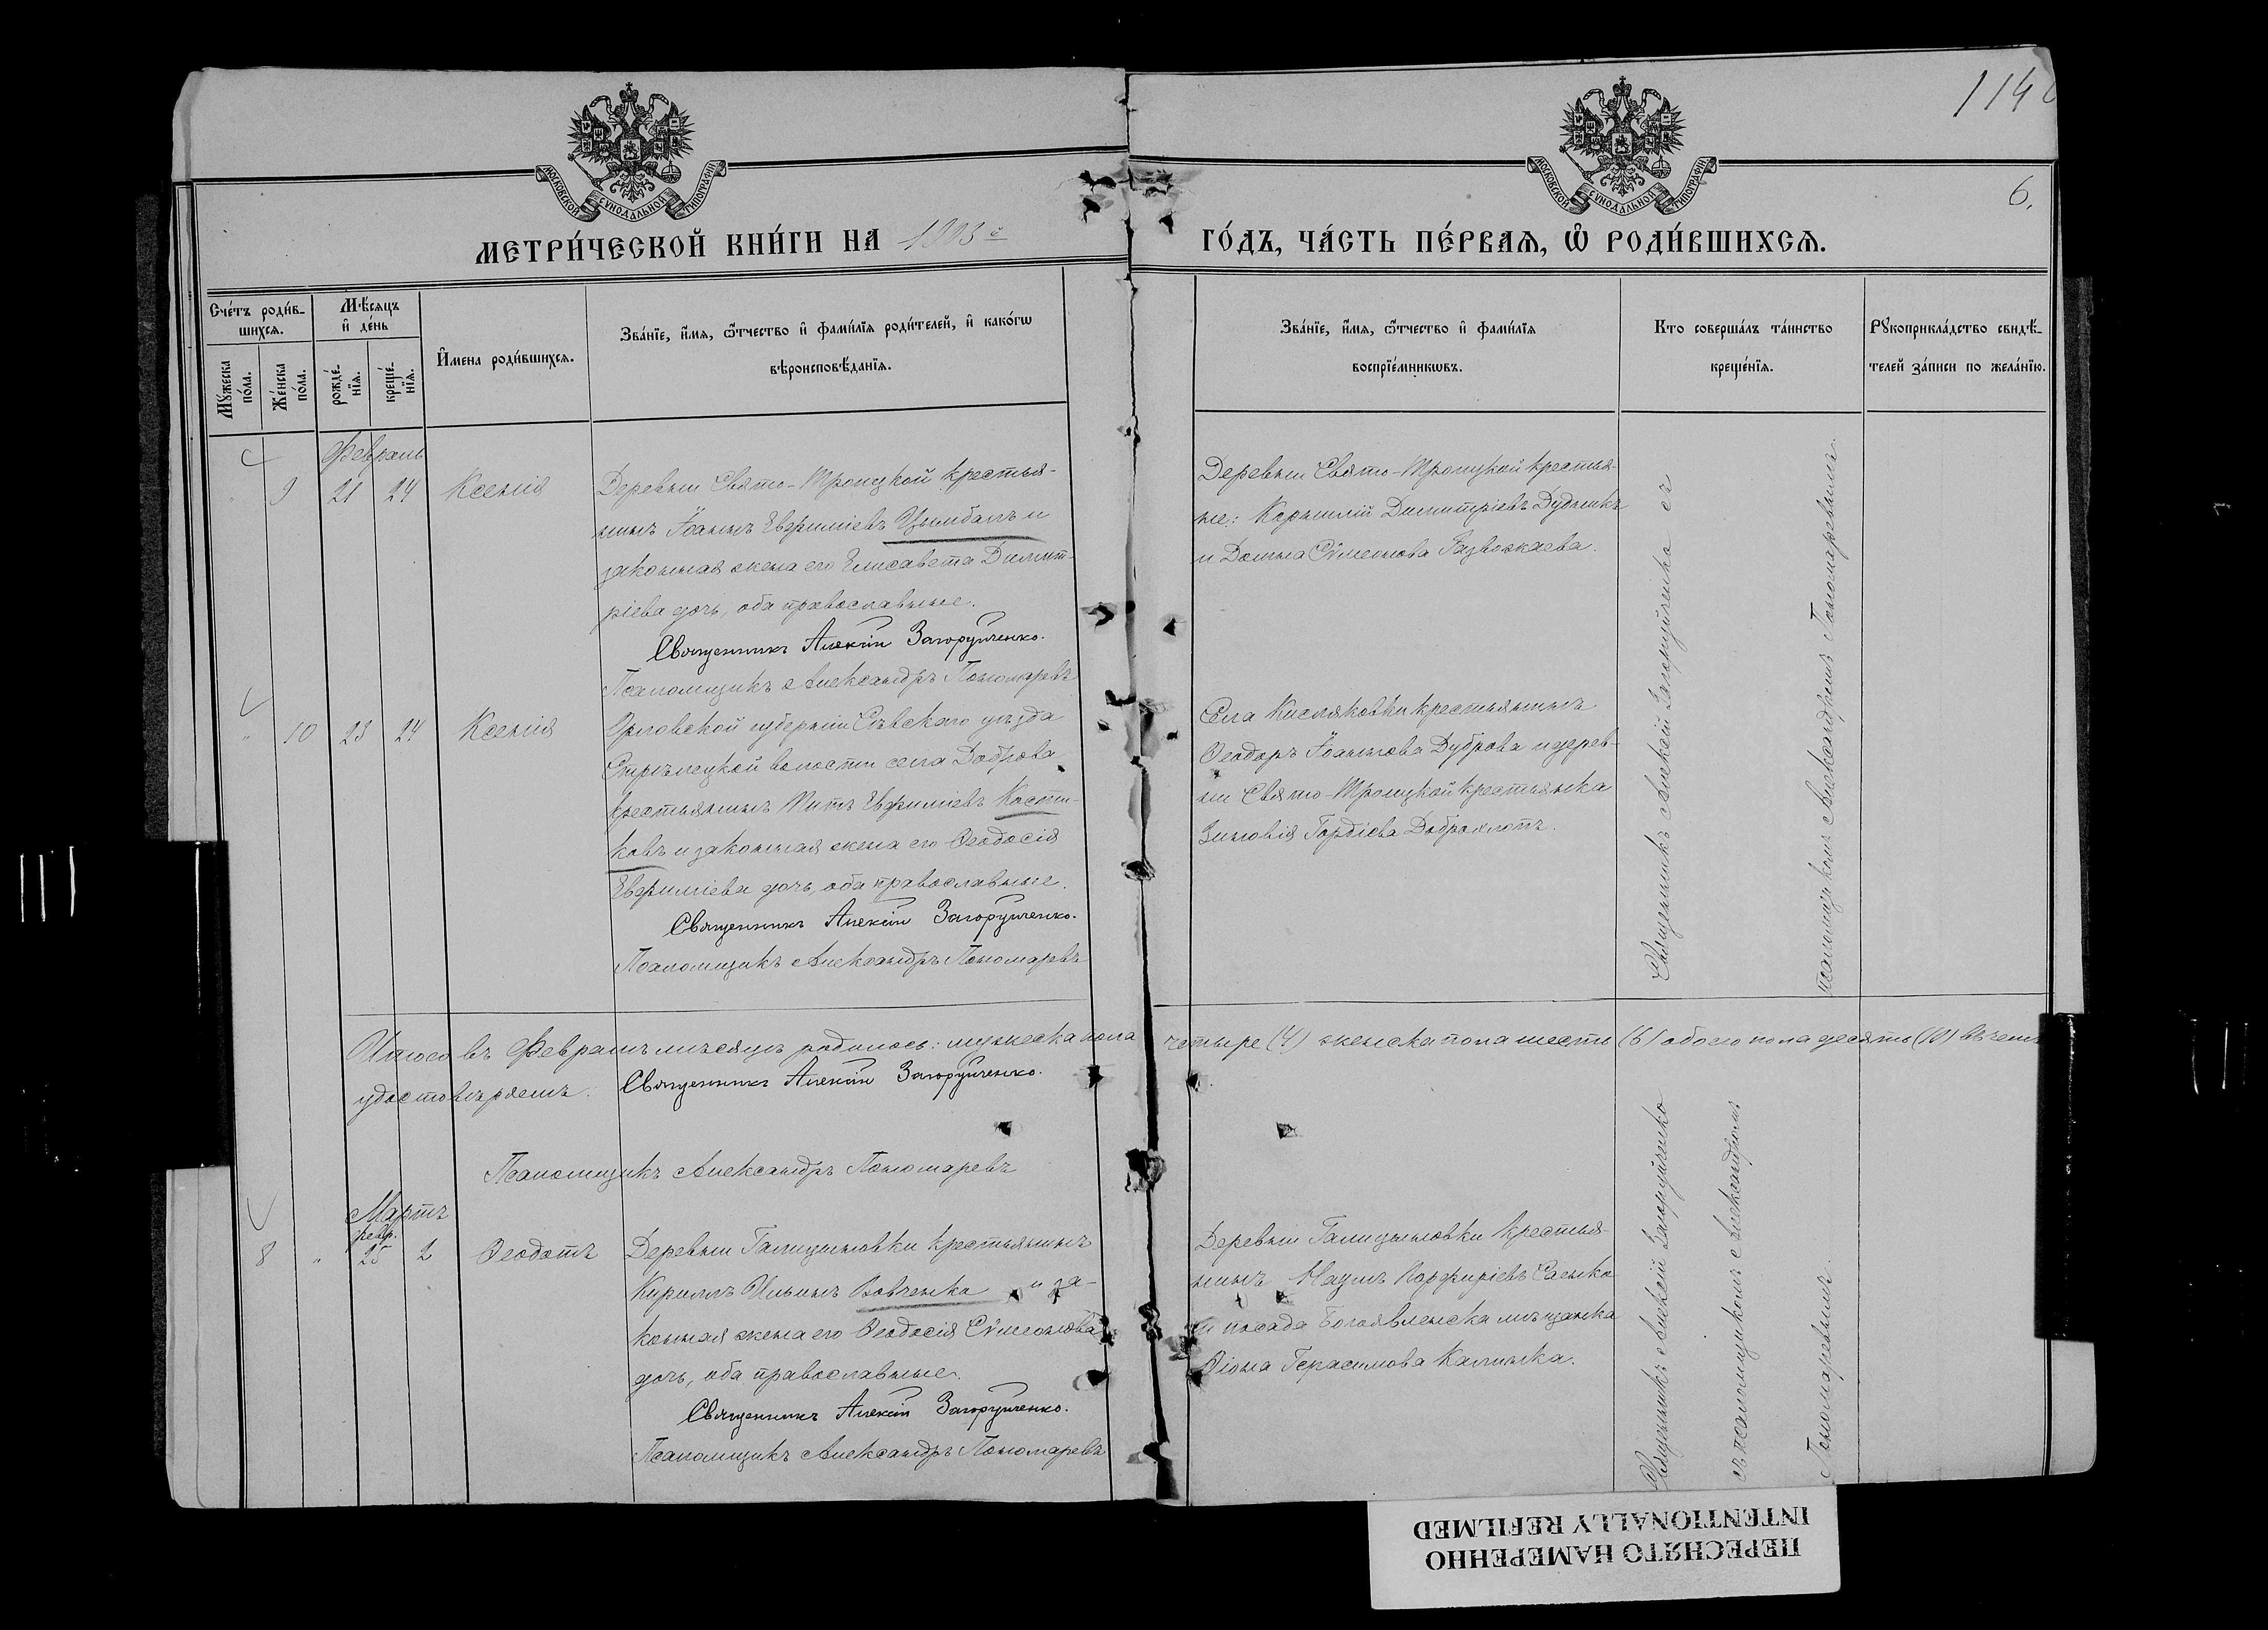 114
6.
МОСКОВСКОЙ СУНОДАЛЬНОЙ ТИПОГРАФІИ
МОСКОВСКОЙ СУНОДАЛЬНОЙ ТИПОГРАФІИ
МЕТРИ́ЧЕСКОЙ КНИ́ГИ НА 1903 й
ГО́ДЪ, ЧА́СТЬ ПЕ́РВАѦ, Ѿ РОДИ́ВШИХСѦ.
Сче́тъ роди́в-
шихсѧ.
Мѣ́сѧцъ
и҆ де́нь
Му́жеска
по́ла.
Же́нска
по́ла.
рожде́-
нїѧ.
креще́-
нїѧ.
И҆мена роди́вшихсѧ.
Зва́нїе, и҆́мѧ, ѻ҆́тчество и҆ фами́лїѧ роди́телей, и҆ како́гѡ
вѣроисповѣ́данїѧ.
Зва́нїе, и҆́мѧ, ѻ҆́тчество и҆ фами́лїѧ
воспрїе́мникѡвъ.
Кто соверша́лъ та́инство
креще́нїѧ.
Рꙋкоприкла́дство свидѣ́-
телей за́писи по жела́нїю.
Февраль
9 21 24 Ксенія
Деревни Свято-Троицкой крестья-
нинъ Іоаннъ Евфиміевъ Цымбалъ и
законная жена его Елисавета Димит-
ріева дочь, оба православные.
Священникъ Алексій Загоруйченко.
Псаломщикъ Александръ Пономаревъ
Деревни Свято-Троицкой крестья-
не: Корнилій Димитріевъ Дудникъ
и Домна Сѵмеонова
Священникъ Алексій Загоруйченко съ
псаломщикомъ Александромъ Пономаревымъ.
" 10 23 24 Ксенія
Орловской губерніи Сѣвскаго уѣзда
Стрѣлецкой волости села Доброва
крестьянинъ Титъ Евфиміевъ Кости-
ковъ и законная жена его Ѳеодосія
Евфиміева дочь, оба православные.
Священникъ Алексій Загоруйченко.
Псаломщикъ Александръ Пономаревъ
Села Кисляковки крестьянинъ
Ѳеодоръ Іоаннова Дуброва и дерев-
ни Свято-Троицкой крестьянка
Зиновія Гордіева
Итого въ Февралѣ мѣсяцѣ родилось: мужеска пола четыре (4) женска пола шесть (6) обоего пола десять (10) въ чемъ
удостовѣряемъ. Священникъ Алексій Загоруйченко.
Псаломщикъ Александръ Пономаревъ
Мартъ
февр.
8 " 25 2 Ѳеодотъ
Деревни Галицыновки крестьянинъ
Кириллъ Ильинъ Вовченко и за-
конная жена его Ѳеодосія Сѵмеонова
дочь, оба православные.
Священникъ Алексій Загоруйченко.
Псаломщикъ Александръ Пономаревъ
Деревни Галицыновки крестья-
нинъ Наумъ Порфиріевъ Саенко
и посада Богоявленска мѣщанка
Ѳіона Герасимова Калинка.
Священникъ Алексій Загоруйченко
съ псаломщикомъ Александромъ
Пономаревымъ.
ПЕРЕСНЯТО НАМЕРЕННО
INTENTIONALLY REFILMED